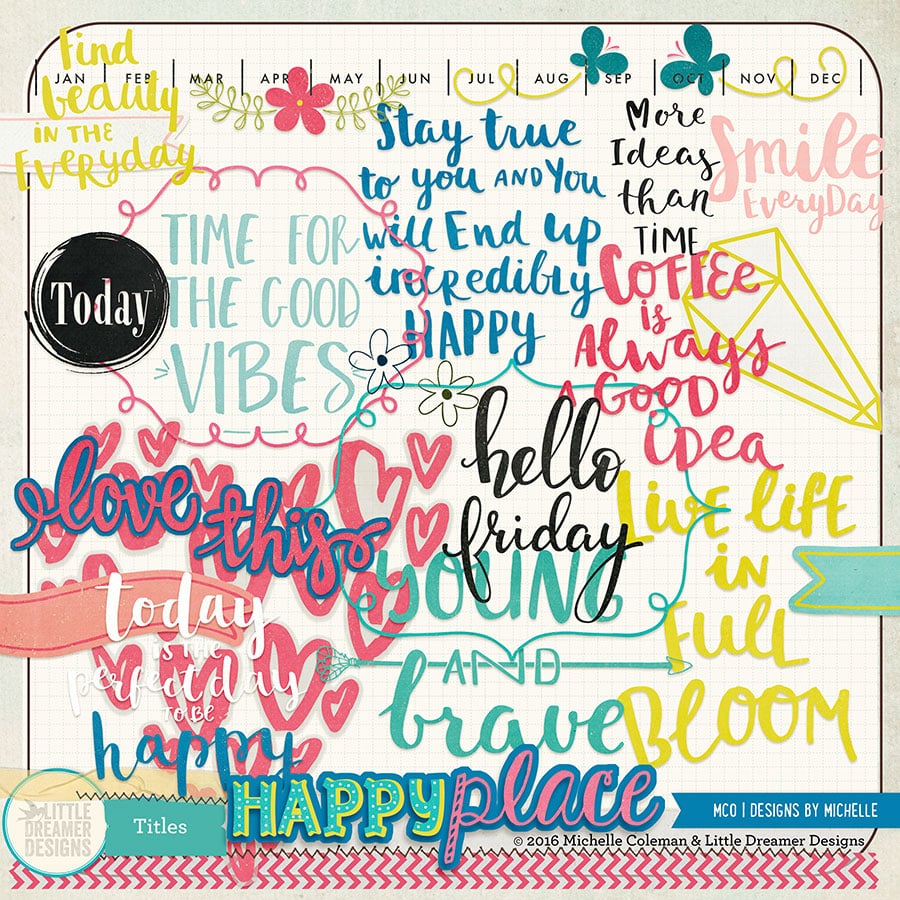 Find
beauty
IN THE
EVERYDAY
JAN FEB MAR APR MAY JUN JUL AUG SEP OCT NOV DEC
Stay true
to you AND YOU
will End up
incredibly
HAPPY
More
Ideas
than
TIME
Smile
EVERYDAY
TIME FOR
THE GOOD
VIBES
Today
COFFEE
is
Always
A GOOD
IDEA
hello
friday
love this
LIVE LIFE
IN
FULL
BLOOM
YOUNG
AND
brave
today
IS THE
perfect day
TO BE
happy
HAPPY place
LITTLE
DREAMER
DESIGNS
Titles
MCO | DESIGNS BY MICHELLE
© 2016 Michelle Coleman & Little Dreamer Designs